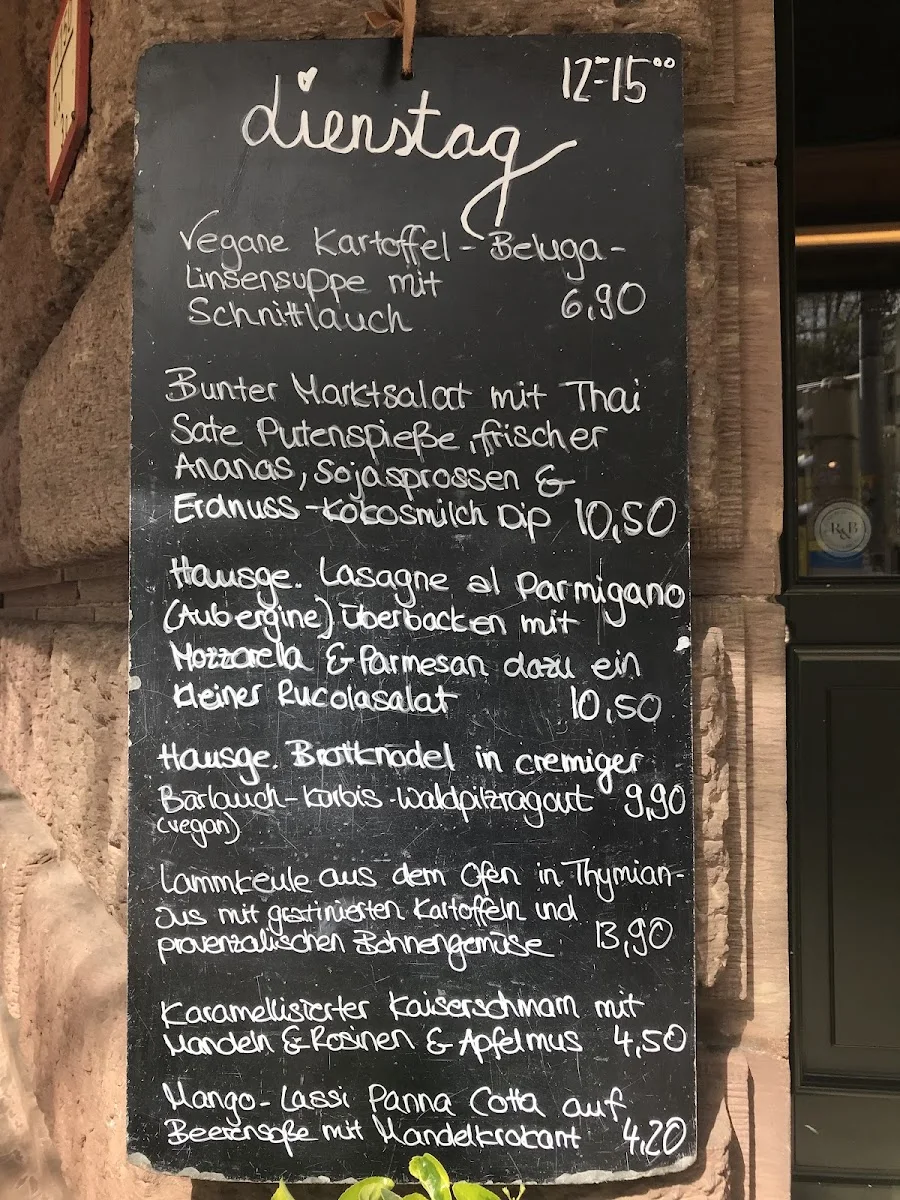 12⁰⁰-15⁰⁰
dienstag
Vegane Kartoffel-Beluga-
Linsensuppe mit
Schnittlauch 6,90
Bunter Marktsalat mit Thai
Sate Putenspieße, frischer
Ananas, Sojasprossen &
Erdnuss-Kokosmilch Dip 10,50
Hausge. Lasagne al Parmigano
(Aubergine) überbacken mit
Mozzarela & Parmesan dazu ein
kleiner Rucolasalat 10,50
Hausge. Brotknödel in cremiger
Bärlauch-Kürbis-Waldpilzragout 9,90
(vegan)
Lammkeule aus dem Ofen in Thymian-
Jus mit gratinierten Kartoffeln und
provenzalischen Bohnengemüse 13,90
Karamellisierter Kaiserschmarn mit
Mandeln & Rosinen & Apfelmus 4,50
Mango-Lassi Panna Cotta auf
Beerensoße mit Mandelkrokant 4,20
R&B